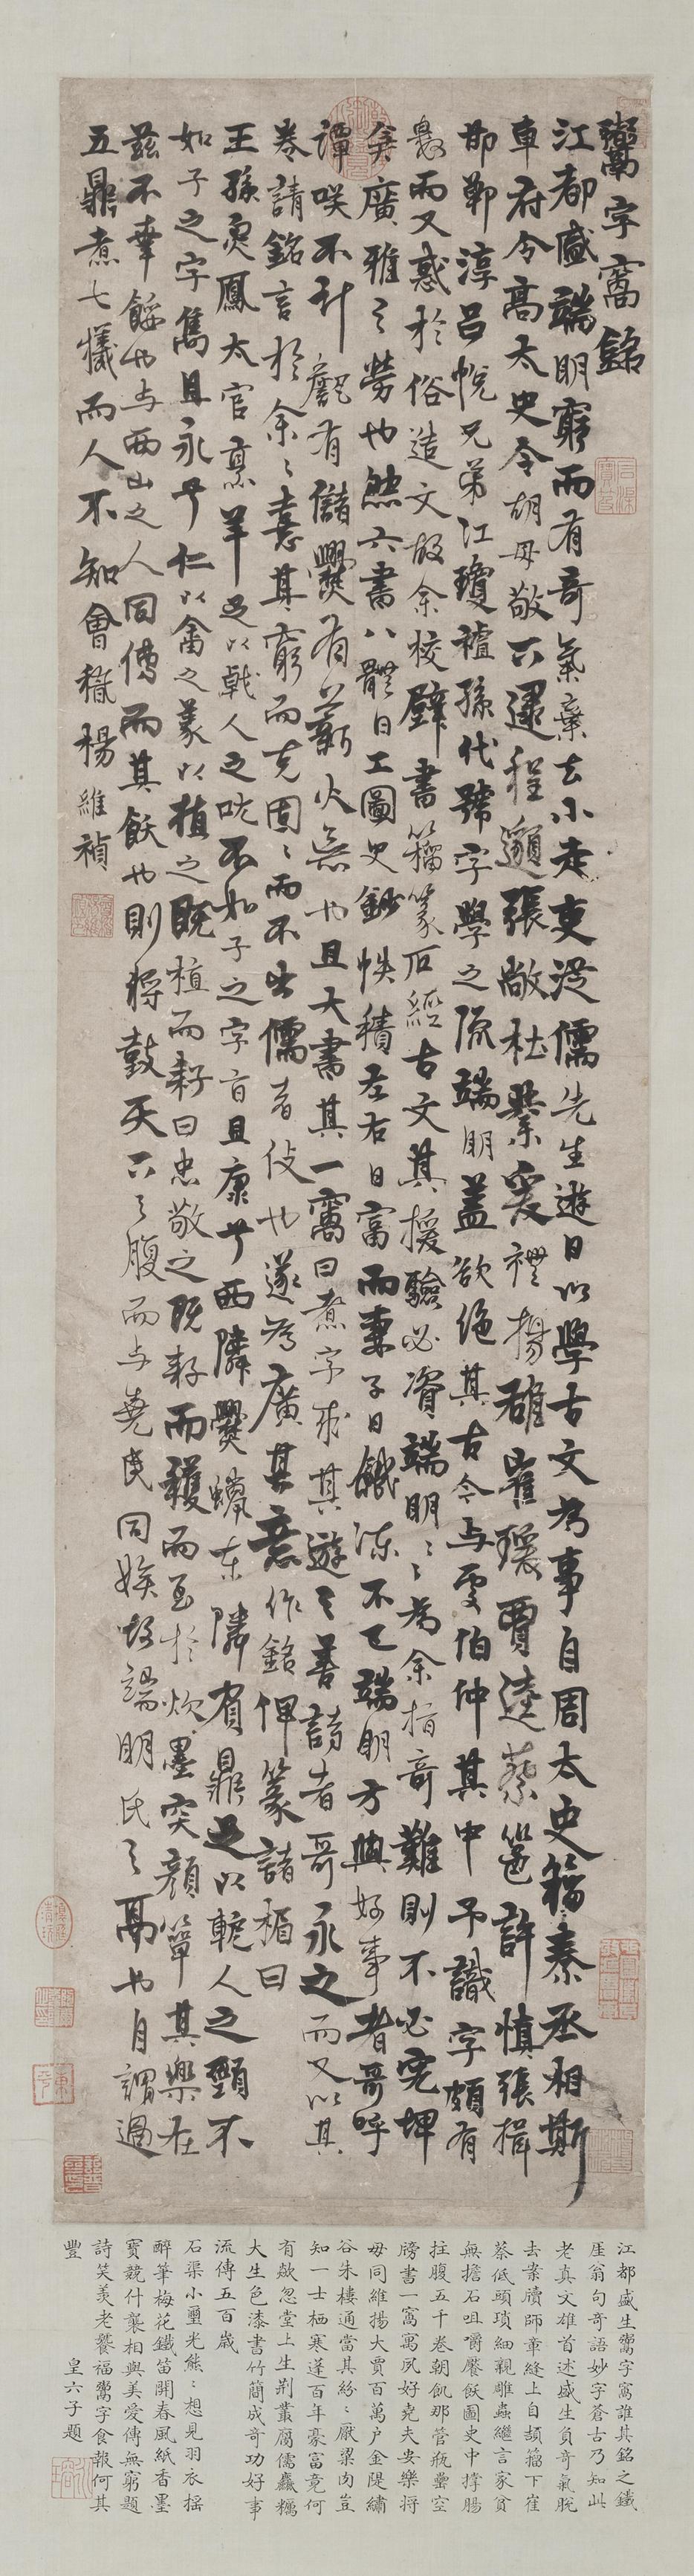 鬻字窩銘
江都盛端明窮而有奇氣棄去小走吏從儒先生遊日以學古文為事自周太史籀秦丞相斯
車府令高太史令胡毋敬下逮程邈張敞杜業爰禮揚雄崔瑗賈逵蔡邕許慎張揖
邯鄲淳呂悅兄弟江瓊
孫代號字學之流端明蓋欲絶其古今与
伯仲其中予識字頗有
而又惑於俗造文故余校壁書籀篆石經古文其援驗必資端明〻為余指奇難則不必究埤
廣雅之勞也然六書八體日工圖史鈔帙積左右日富而妻子日餓凍不已端明方與好事者哥呼
譚咲不
有儲爨有薪火
也且大書其一窩曰煮字
其遊之善詩者哥永之而又以其
卷請銘言於余〻
其窮而克固〻而不出儒者伎也遂為廣其意作銘俾篆諸楣曰
王孫
鳳太官
羊足以戟人之吭不如子之字旨且康兮西隣爨蠟東隣
鼎足以
人之頸不
如子之字雋且永兮仁以
之義以植之既植而耔曰忠敬之既耔而穫而至於炊墨突顏簞其樂在
茲不幸餒也与西山之人同傳而其飫也則將鼓天下之腹而与堯民同
故端明氏之鬲也自謂過
五鼎煮七犧而人不知會稽楊維禎
江都盛生鬻字窩誰其銘之鐵
厓翁句奇語妙字蒼古乃知此
老真文雄首述盛生負奇氣脫
去案牘師章縫上自頡籀下崔
蔡低頭瑣細親雕蟲繼言家貧
無擔石咀嚼饜飫圖史中撐腸
拄腹五千卷朝飢那管瓶罍空
牓書一窩寓夙好堯夫安樂將
毋同維揚大賈百萬户金隄繡
谷朱樓通當其紛〻厭粱肉豈
知一士栖寒蓬百年豪富竟何
有歘忽堂上生荆叢腐儒麤糲
大生色漆書竹簡成奇功好事
流傳五百歲
石渠小璽光熊〻想見羽衣搖
醉筆梅花鐵笛開春風紙香墨
寶競什襲相與美愛傳無窮題
詩笑羨老饕福鬻字食報何其
豐
皇六子題